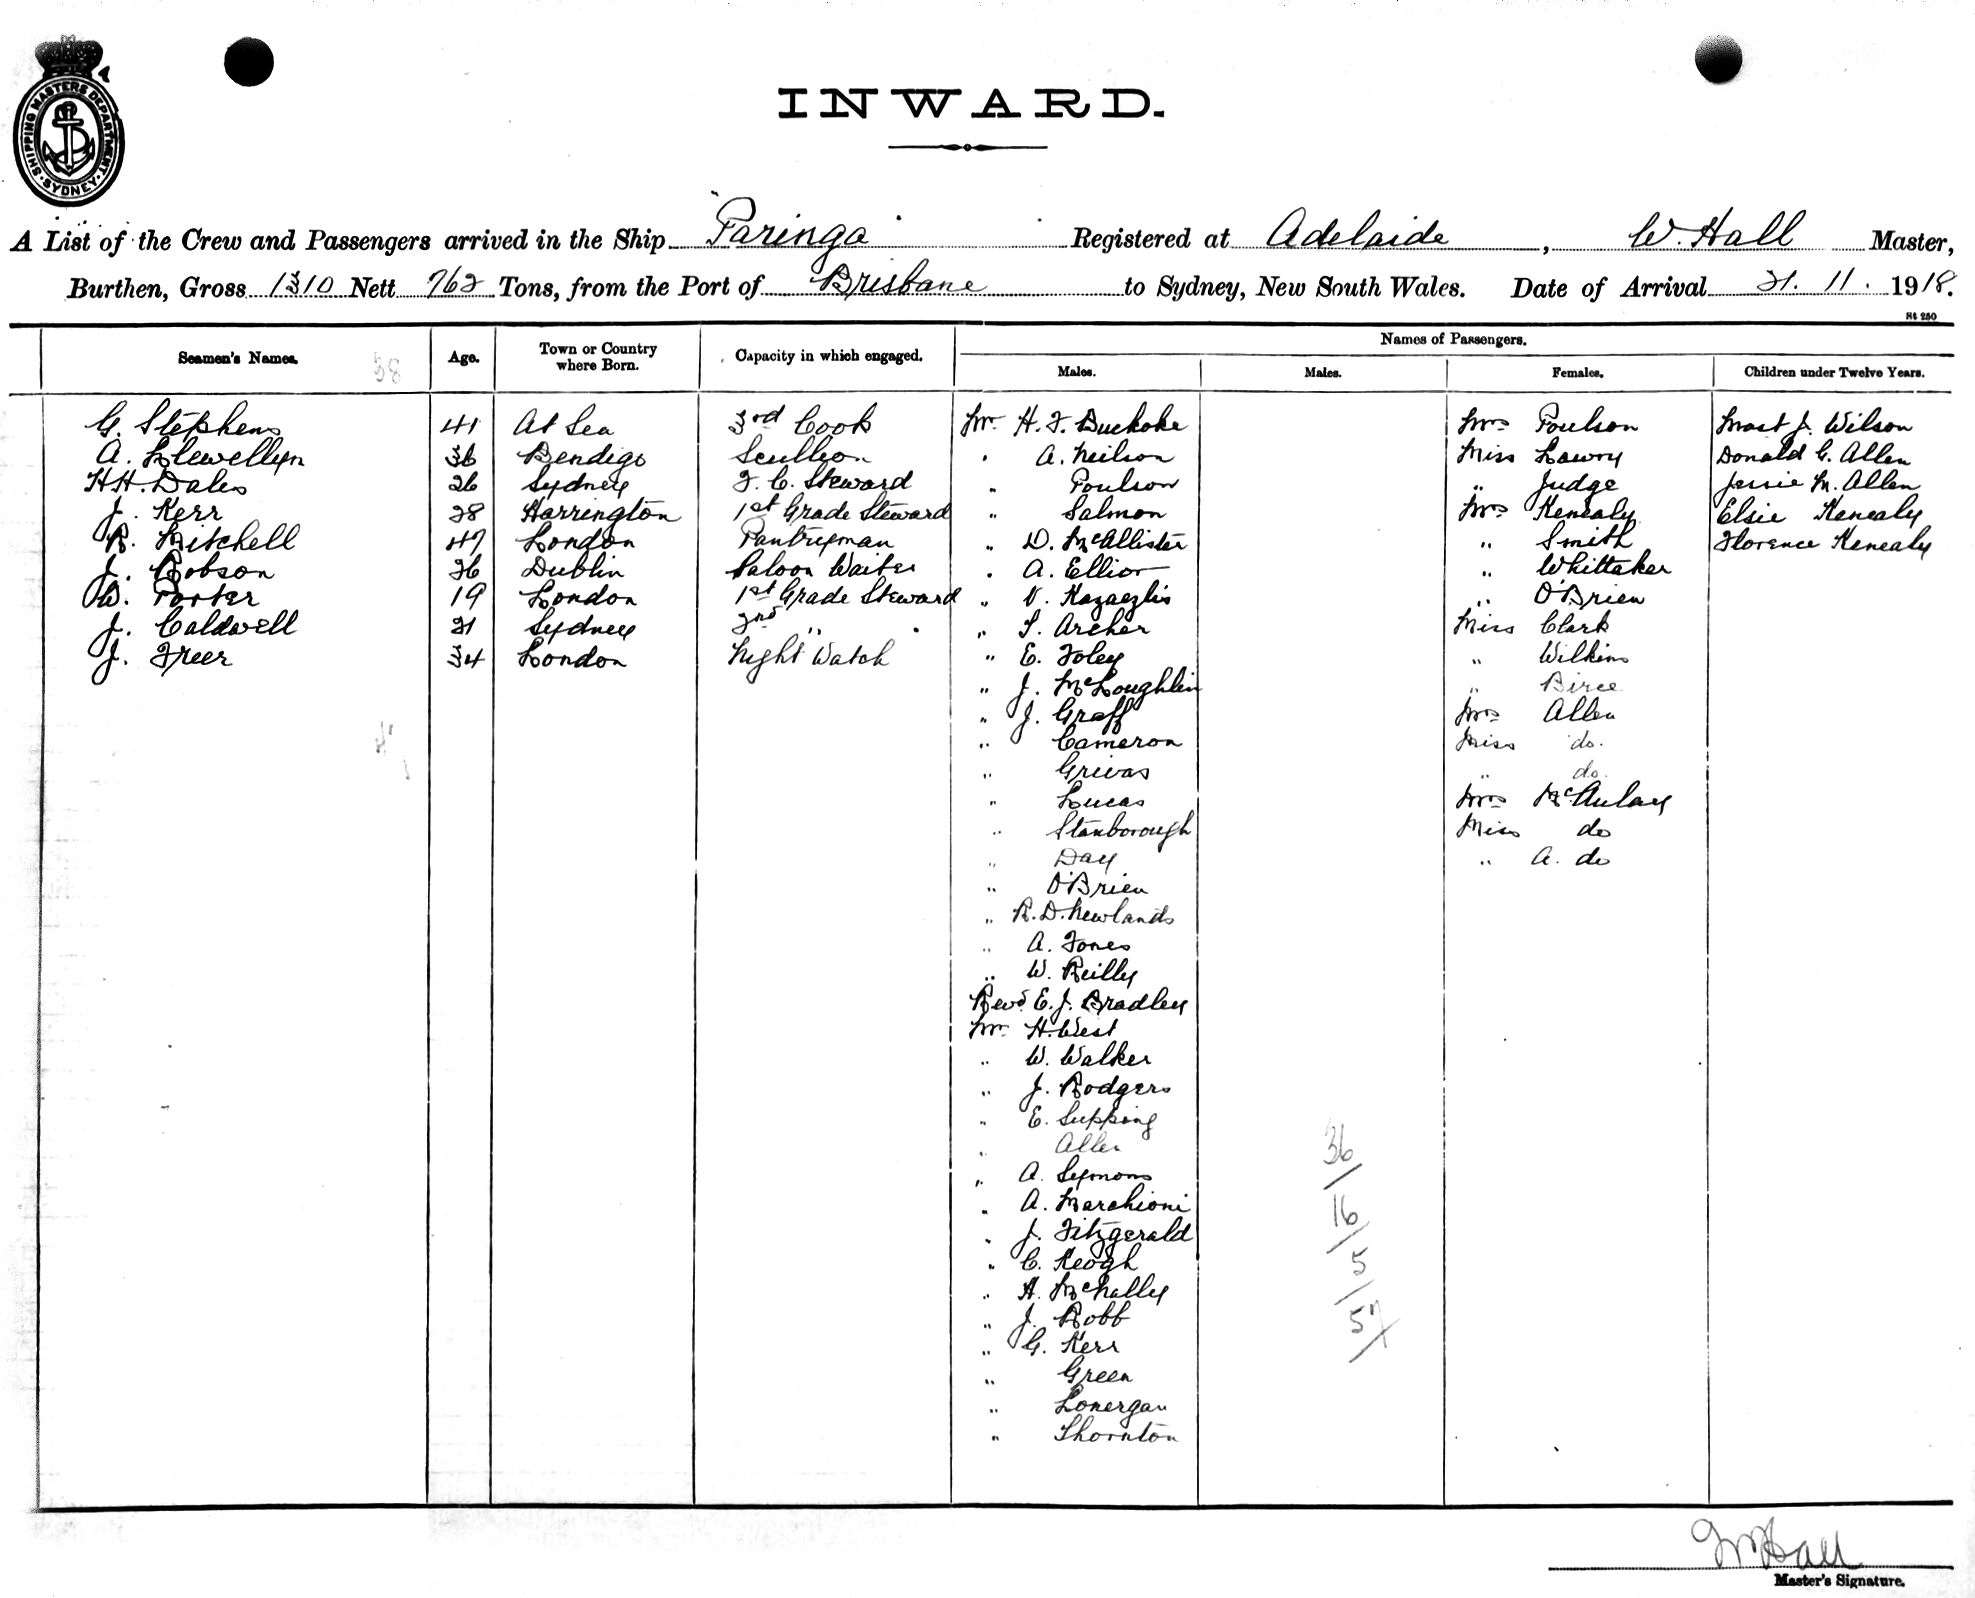 SHIPPING MASTERS DEPARTMENT
SYDNEY
INWARD.
A List of the Crew and Passengers arrived in the Ship "Paringa" Registered at Adelaide, W. Hall Master,
Burthen, Gross 1310 Nett 762 Tons, from the Port of Brisbane to Sydney, New South Wales. Date of Arrival 21. 11. 1918.
St 250
Seamen's Names. 58 Age. Town or Country where Born. Capacity in which engaged. Names of Passengers.
Males. Males. Females. Children under Twelve Years.
G. Stephens 41 At Sea 3rd Cook Mr. H. F. Buckoke Mrs Poulson Mast J. Wilson
A. Llewellyn 36 Bendigo Scullion " A. Neilson Miss Lawry Donald G. Allen
H.H. Dales 26 Sydney F. C. Steward " Poulson " Judge Jessie M. Allen
J. Kerr 28 Harrington 1st Grade Steward " Salmon Mrs Kenealy Elsie Kenealy
R. Mitchell 47 London Pantryman " D. McAllister " Smith Florence Kenealy
J. Robson 26 Dublin Saloon Waiter " A. Ellior " Whittaker
W. Porter 19 London 1st Grade Steward " V. Kazaezlis " O'Brien
J. Caldwell 21 Sydney 2nd " " T. Archer Miss Clark
J. Freer 34 London Night Watch " E. Foley " Wilkins
" J. McLoughlin " Birce
" J. Graff Mrs Allen
" Cameron Miss do.
" Grivas " do.
" Lucas Mrs McAulay
" Stanborough Miss do
" Day " A. do
" O'Brien
" R. D. Newlands
" A. Jones
" W. Reilly
Revd. E. J. Bradley
Mr. H. West
" W. Walker
" J. Rodgers
" E. Supping
" Allen
" A. Symons
" A. Marchioni
" J. Fitzgerald
" C. Keogh
" H. McNally
" J. Robb
" G. Kerr
" Green
" Lonergan
" Thornton
36/
16/
5/
57
W Hall
Master's Signature.